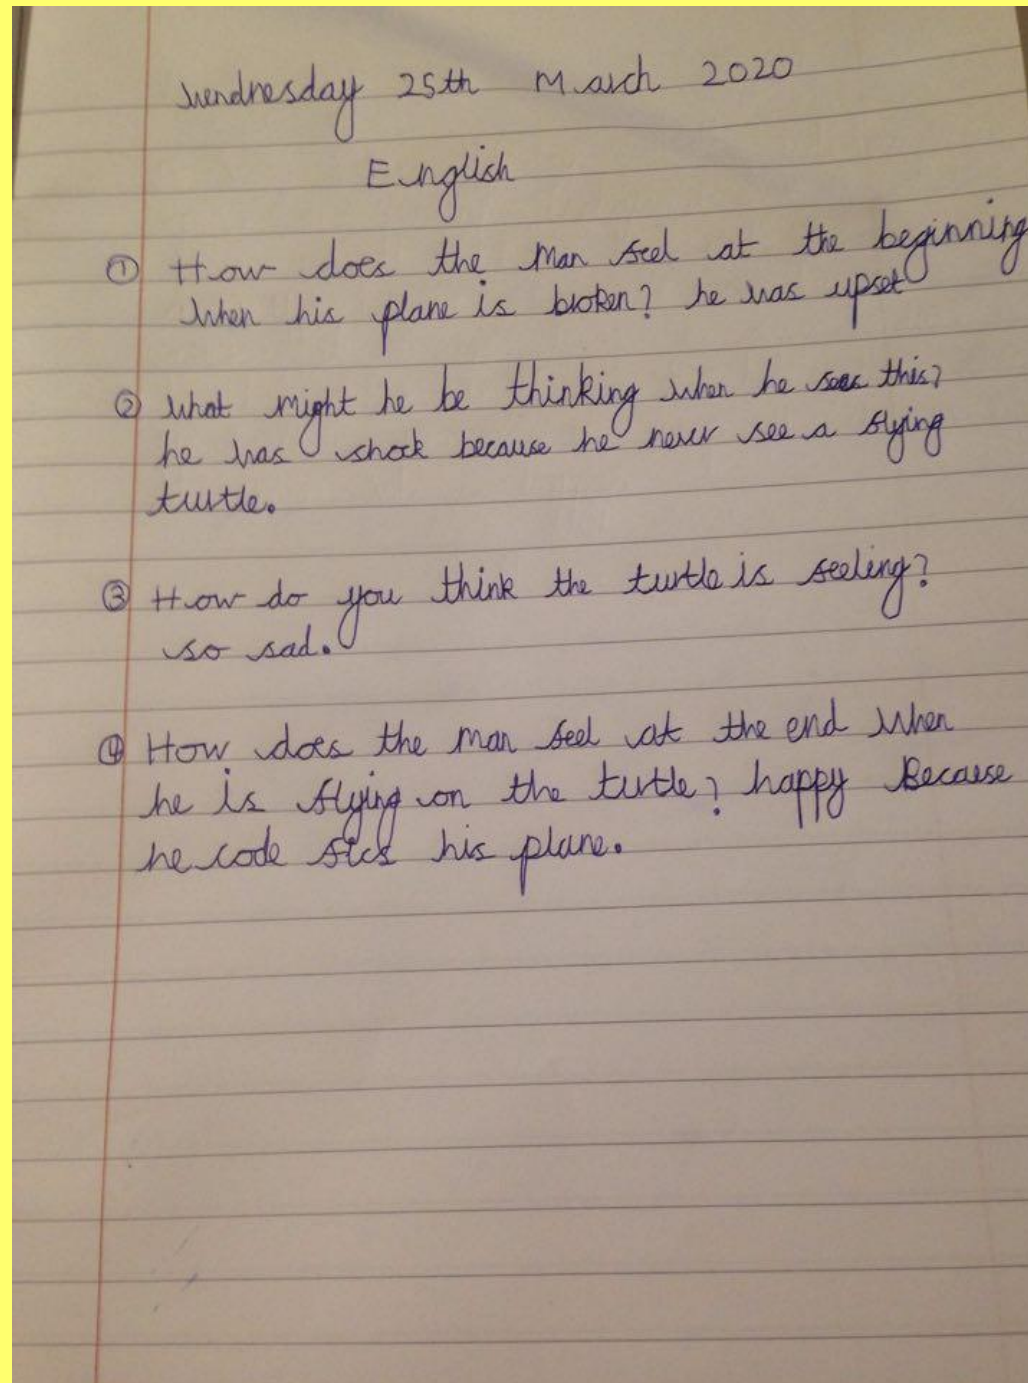 Wendnesday 25th March 2020
English
① How does the man feel at the beginning
when his plane is broken? he was upset
② what might he be thinking when he sees this?
he was shock because he never see a flying
turtle.
③ How do you think the turtle is feeling?
so sad.
④ How does the man feel at the end when
he is flying on the turtle? happy Because
he code fics his plane.